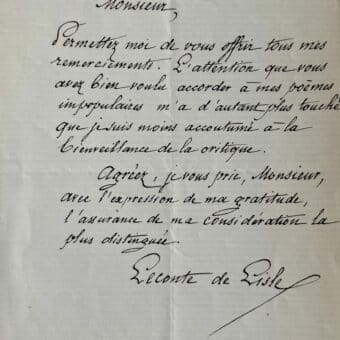 Monsieur,
Permettez moi de vous offrir tous mes
remerciements. L'attention que vous
avez bien voulu accorder à mes poëmes
impopulaires m'a d'autant plus touché
que je suis moins accoutumé à la
bienveillance de la critique.
Agréez, je vous prie, Monsieur,
avec l'expression de ma gratitude,
l'assurance de ma considération la
plus distinguée.
Leconte de Lisle